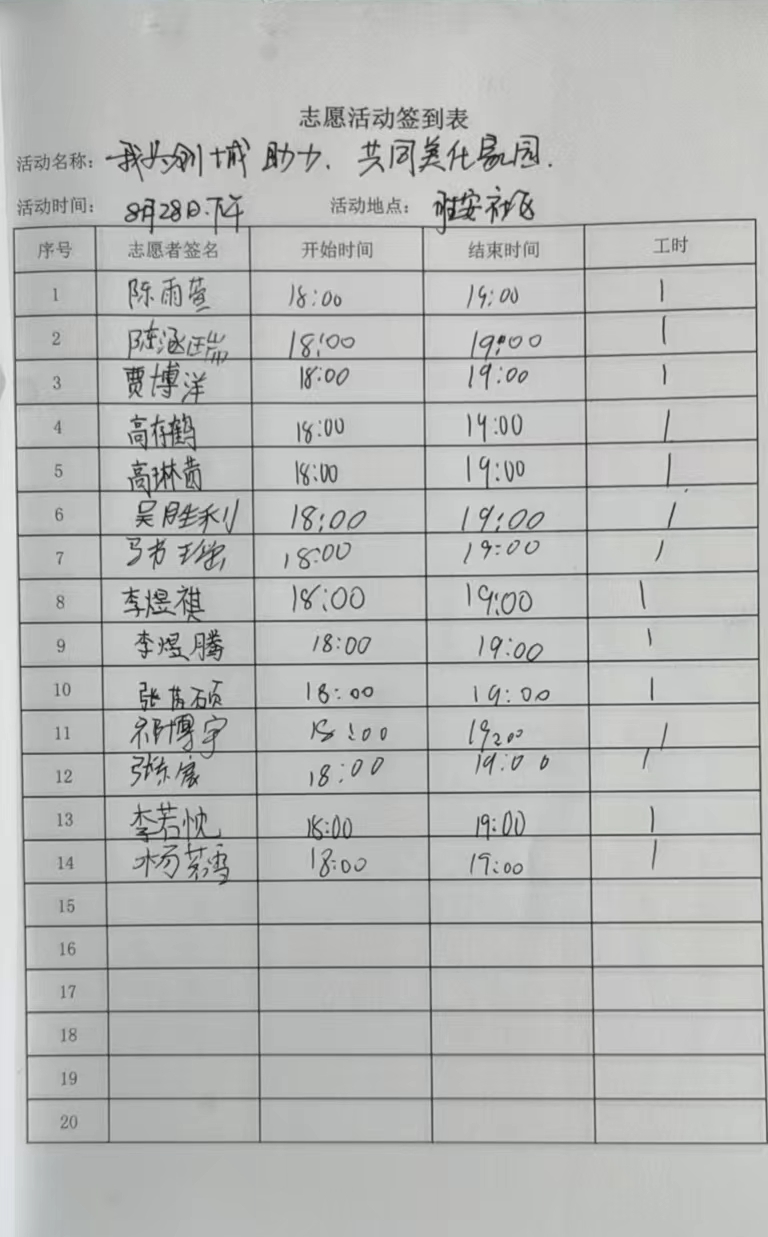 志愿活动签到表
活动名称：我为创城助力、共同美化家园.
活动时间：8月28日.下午 活动地点：雅安社区
序号 志愿者签名 开始时间 结束时间 工时
1 陈雨萱 18:00 19:00 1
2 陈涵瑞 18:00 19:00 1
3 贾博洋 18:00 19:00 1
4 高存鹤 18:00 19:00 1
5 高琳茵 18:00 19:00 1
6 吴胜利 18:00 19:00 1
7 18:00 19:00 1
8 李煜祺 18:00 19:00 1
9 李煜腾 18:00 19:00 1
10 18:00 19:00 1
11 祁博宇 18:00 19:00 1
12 18:00 19:00 1
13 李若忱 18:00 19:00 1
14 18:00 19:00 1
15
16
17
18
19
20